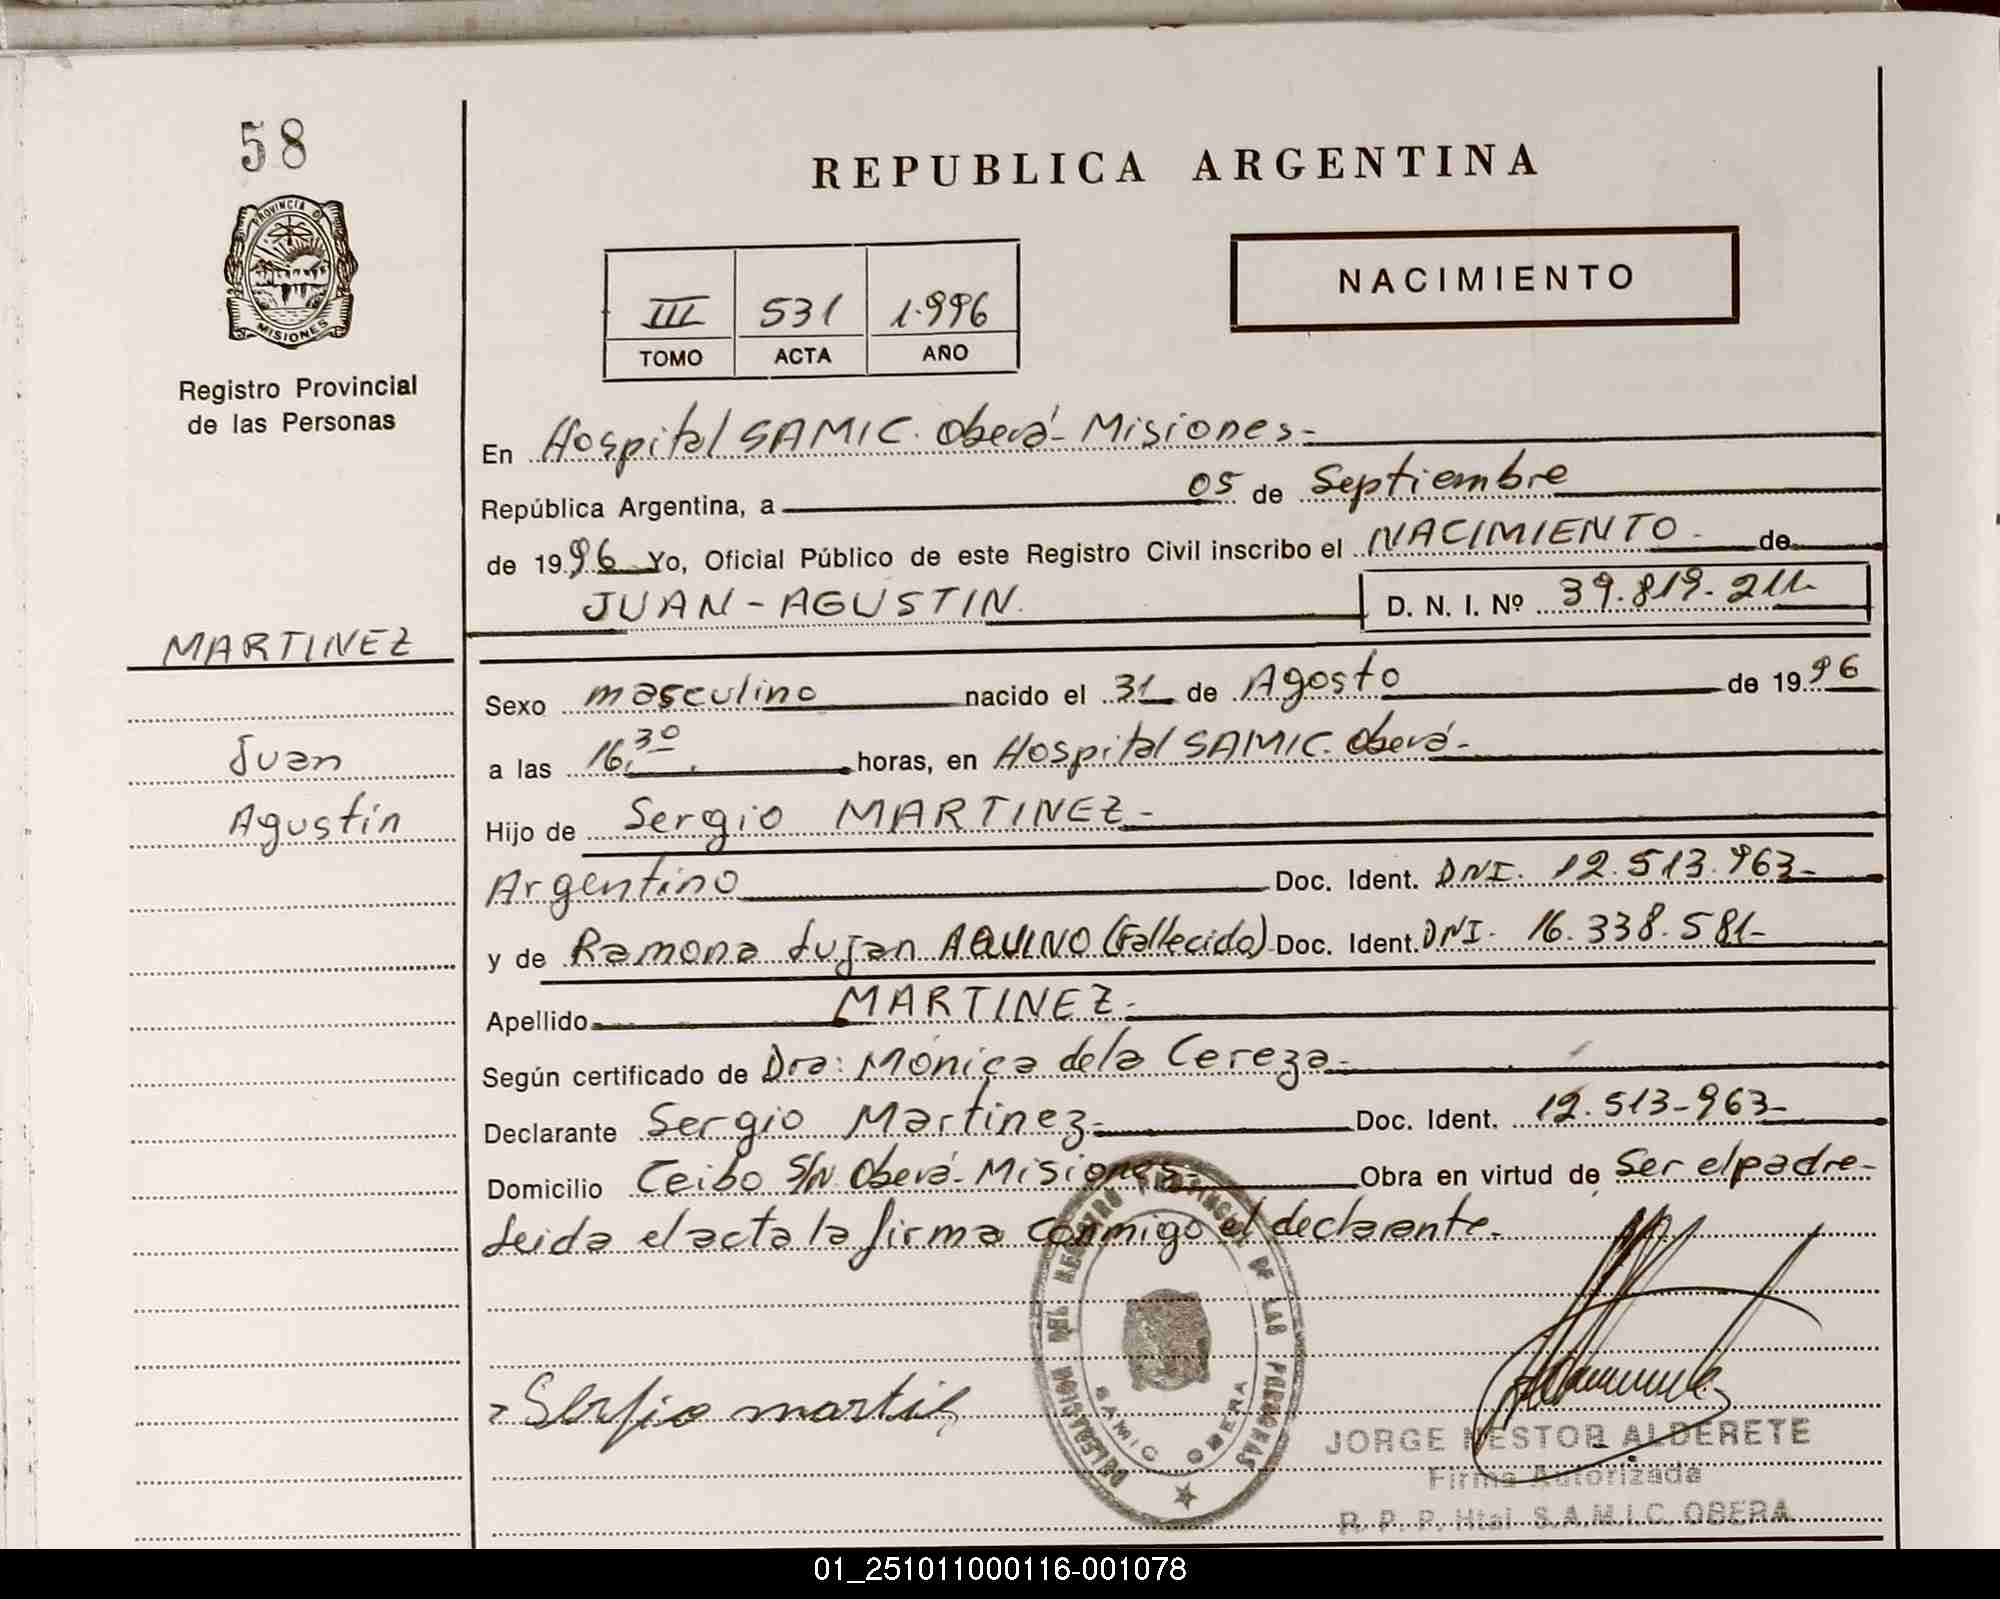 58
PROVINCIA DE
MISIONES
Registro Provincial
de las Personas
REPUBLICA ARGENTINA
NACIMIENTO
III 531 1.996
TOMO ACTA AÑO
En Hospital SAMIC. Oberá - Misiones -
República Argentina, a 05 de Septiembre
de 1996 Yo, Oficial Público de este Registro Civil inscribo el NACIMIENTO - de
JUAN - AGUSTIN. D. N. I. Nº 39.819.211-
MARTINEZ
Juan
Agustín
Sexo masculino nacido el 31 de Agosto de 1996
a las 16,30 horas, en Hospital SAMIC. Oberá -
Hijo de Sergio MARTINEZ -
Argentino Doc. Ident. DNI. 12.513.963-
y de Ramona Lujan AQUINO (Fallecida) Doc. Ident. DNI. 16.338.581-
Apellido MARTINEZ -
Según certificado de Dra: Mónica de la Cereza -
Declarante Sergio Martinez - Doc. Ident. 12.513-963-
Domicilio Ceibo S/N Oberá - Misiones - Obra en virtud de Ser el padre -
Leida el acta la firma conmigo el declarante -
DELEGACION DEL REGISTRO PROVINCIAL DE LAS PERSONAS
SAMIC OBERA
Sergio
JORGE NESTOR ALDERETE
Firma Autorizada
R. P. P. Htal S.A.M.I.C. OBERA
01_251011000116-001078